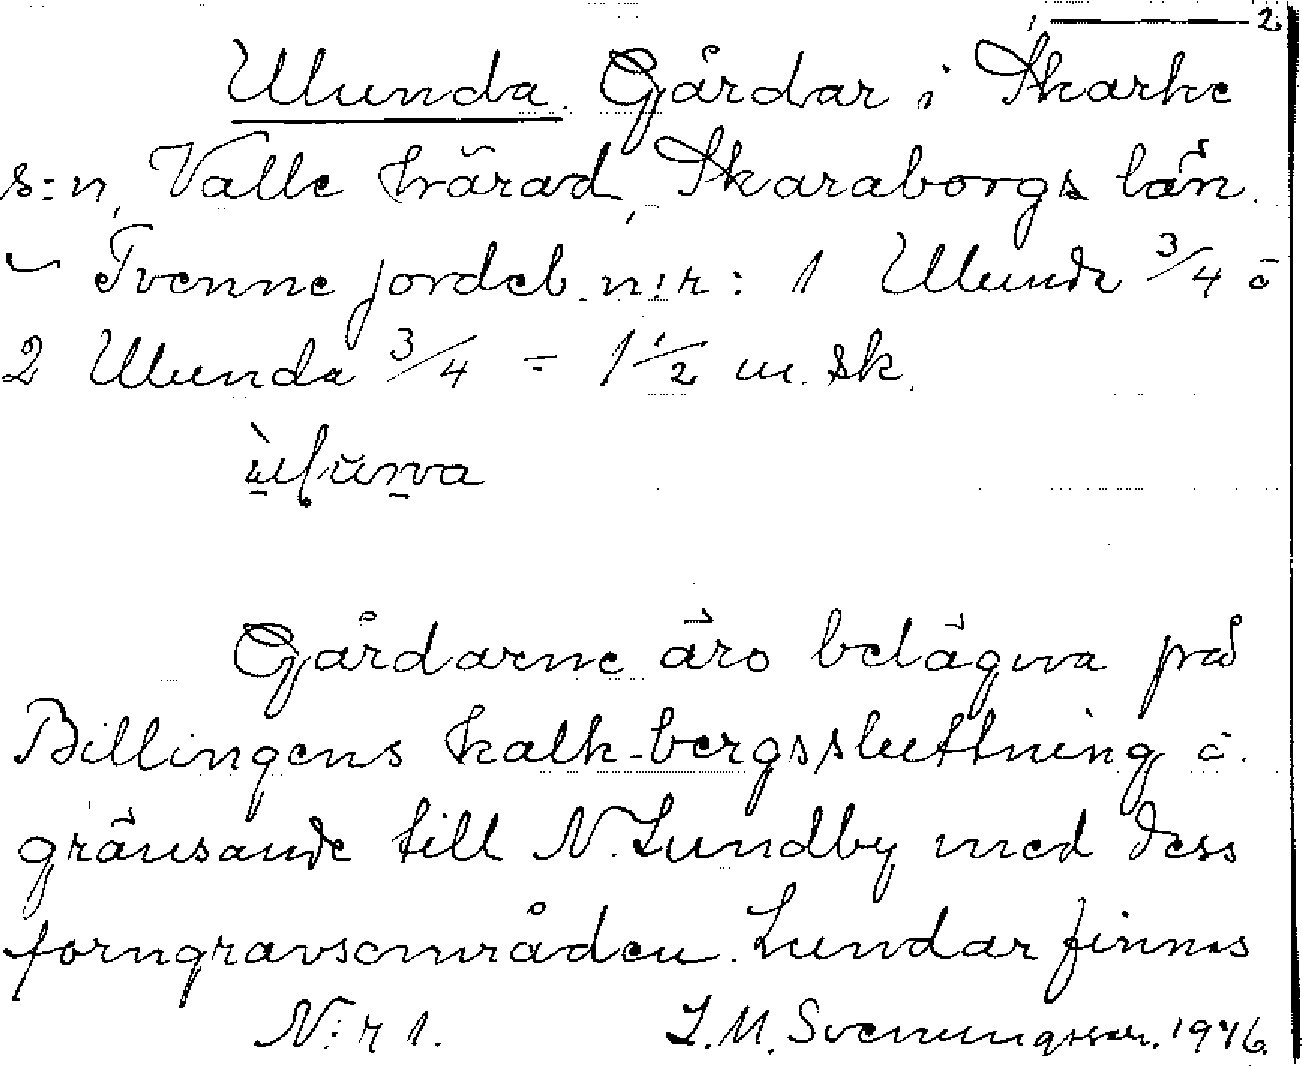 2.
Ulunda. Gårdar i Skarke
s:n, Valle härad, Skaraborgs län.
– Tvenne jordeb. n:r: 1 Ulunda 3/4 o
2 Ulunda 3/4 = 1 1/2 m. sk.
Gårdarne äro belägna på
Billingens kalk-bergssluttning o.
gränsande till N. Lundby med dess
forngravsområden. Lundar finnas
N:r 1. I. M. Svenungsson. 1946.